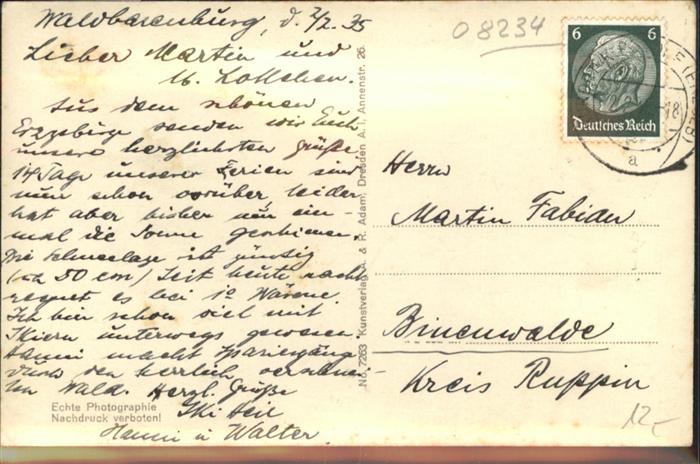 Waldbärenburg, d. 7/2. 35
Lieber Martin und
lb. Lottchen.
Aus dem schönen
Erzgebirge senden wir Euch
unsere herzlichsten Grüße
14 Tage unserer Ferien sind
nun schon vorüber, leider
hat aber bisher nur ein-
mal die Sonne geschienen.
Die Schneelage ist günstig
50 cm) Seit heute nacht
regnet es bei 1° Wärme.
Ich bin schon viel mit
Skiern unterwegs gewesen.
Hanni macht Spaziergänge
durch den herrlich verschnei-
ten Wald. Herzl. Grüße
Ski Heil
Hanni u Walter
Echte Photographie
Nachdruck verboten!
No. 7263 Kunstverlag A. & R. Adam, Dresden A. 1, Annenstr. 26.
08234
6 6
Deutsches Reich
18
a
Herrn
Martin Fabian
Binenwalde
Kreis Ruppin
12,-